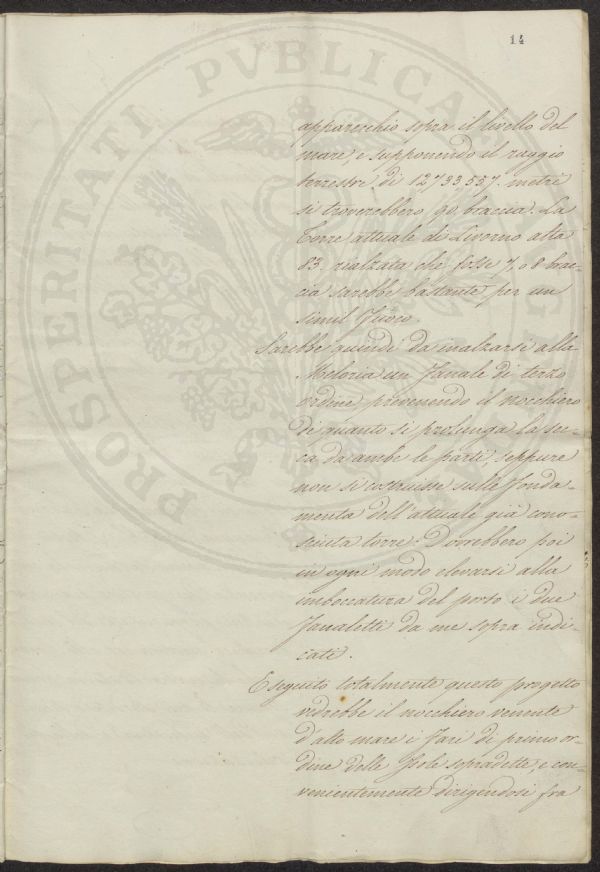 14
PROSPERITATI PVBLICAE
apparecchio sopra il livello del
mare, e supponendo il raggio
terrestre di 12733557. metri
si troverebbero 90. braccia. La
Torre attuale di Livorno alta
83. rialzata che fosse 7, o 8 brac-
cia sarebbe bastante per un
simil Fuoco.
Sarebbe quindi da inalzarsi alla
Meloria un Fanale di terzo
ordine, prevenendo il nocchiero
di quanto si prolunga la sec-
ca da ambe le parti, seppure
non si costruisse sulle fonda-
menta dell'attuale già cono-
sciuta torre. Dovrebbero poi
in ogni modo elevarsi alla
imboccatura del porto i due
Fanaletti da me sopra indi-
cati.
Eseguito totalmente questo progetto
vedrebbe il nocchiero venente
d'alto mare i Fari di primo or-
dine delle Isole sopradette, e con-
venientemente dirigendosi fra